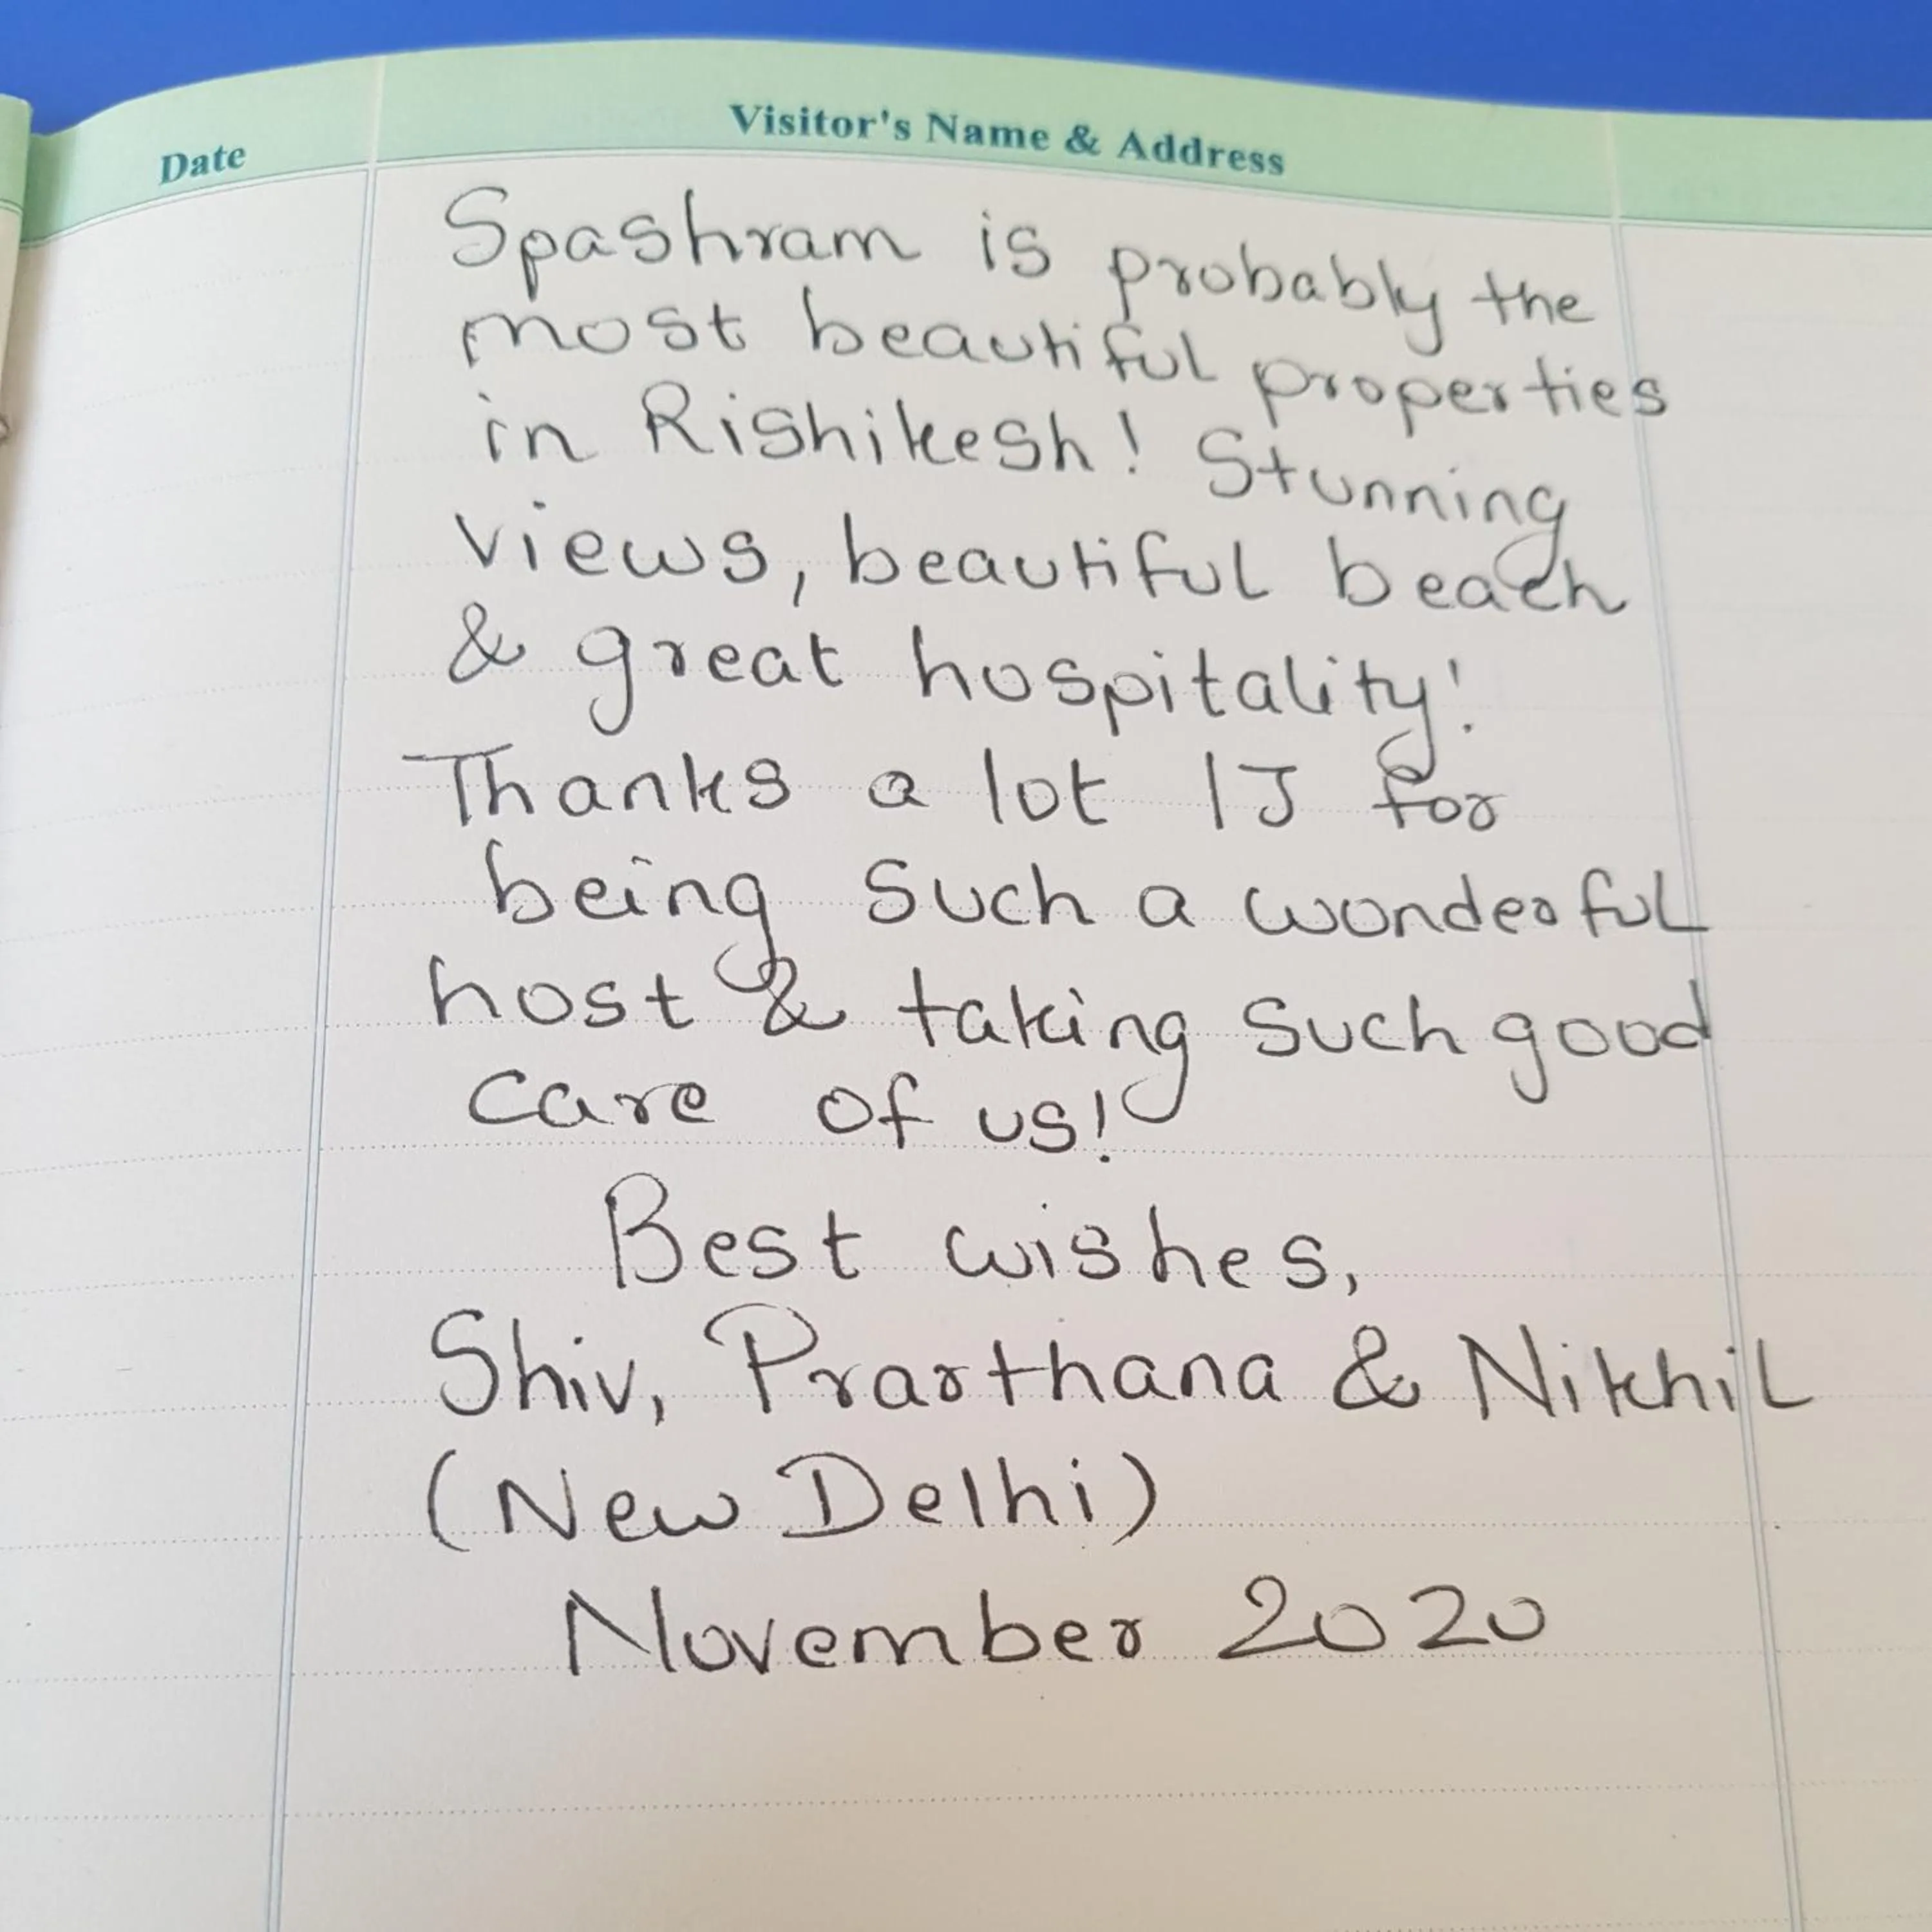 Date Visitor's Name & Address
Spashram is probably the
most beautiful properties
in Rishikesh! Stunning
views, beautiful beach
& great hospitality!
Thanks a lot IJ for
being such a wonderful
host & taking such good
care of us!
Best wishes,
Shiv, Prarthana & Nikhil
(New Delhi)
November 2020